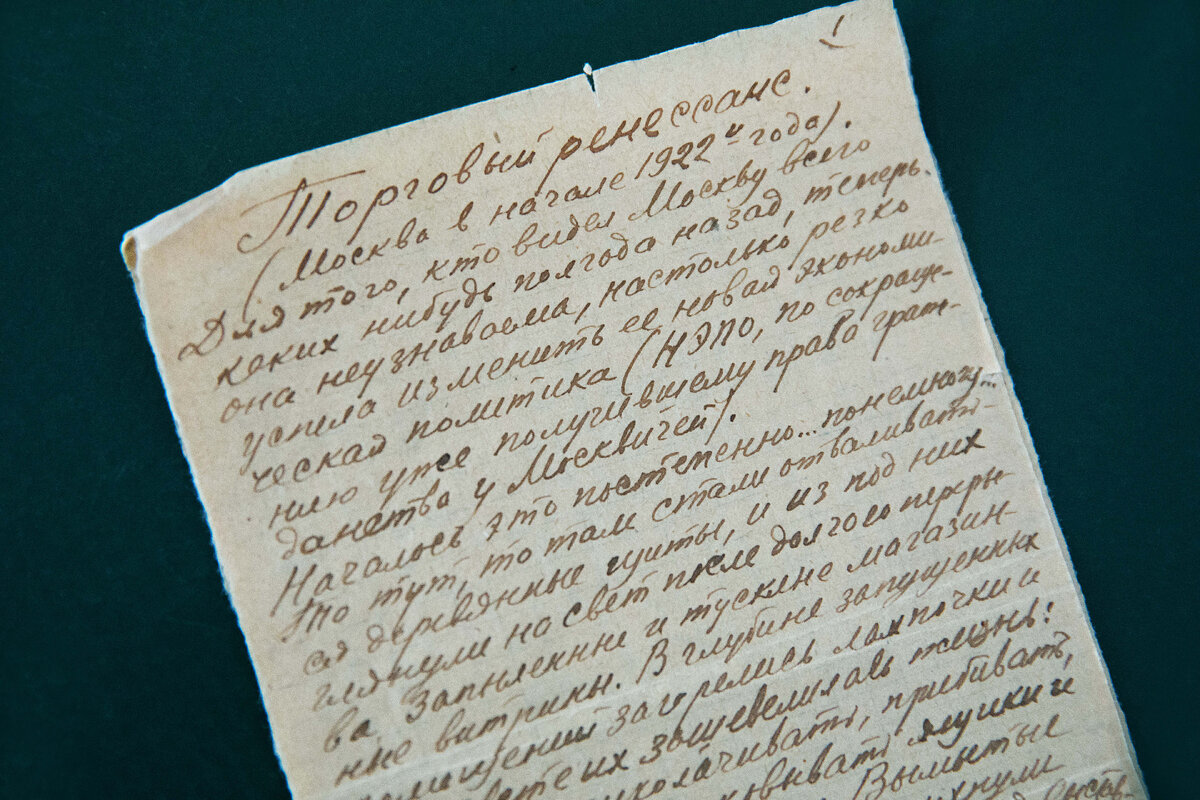 1
Торговый ренессанс.
(Москва в начале 1922 г. года).
Для того, кто видел Москву всего
каких нибудь полгода назад, теперь
она неузнаваема, настолько резко
успела изменить ее новая экономи-
ческая политика (НЭПО, по сокраще-
нию уже получившему права граж-
данства у Москвичей).
Началось это постепенно... понемногу...
То тут, то там стали отваливать-
ся деревянные щиты, и из под них
глянули на свет после долгого переры-
ва запыленные и тусклые магазин-
ные витрины. В глубине запущенных
помещений загорелись лампочки и
свете их зашевелилась жизнь:
приколачивать, прибивать,
ящики и
Вымытые